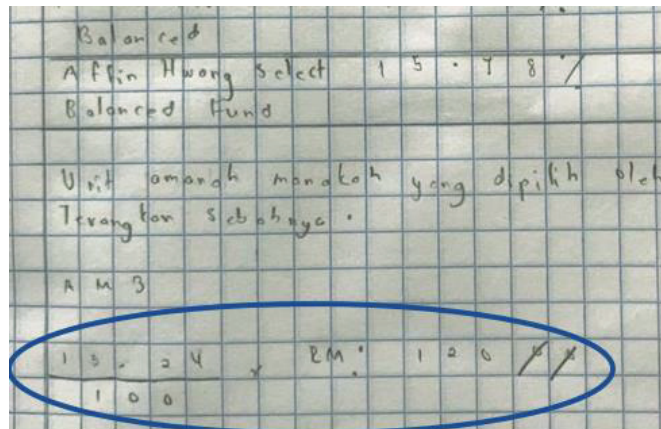 Balanced
Affin Hwang Select 15.78%
Balanced Fund
Unit amanah manakah yang dipilih oleh
Terangkan sebabnya.
AMB
15.24 x RM 120
100